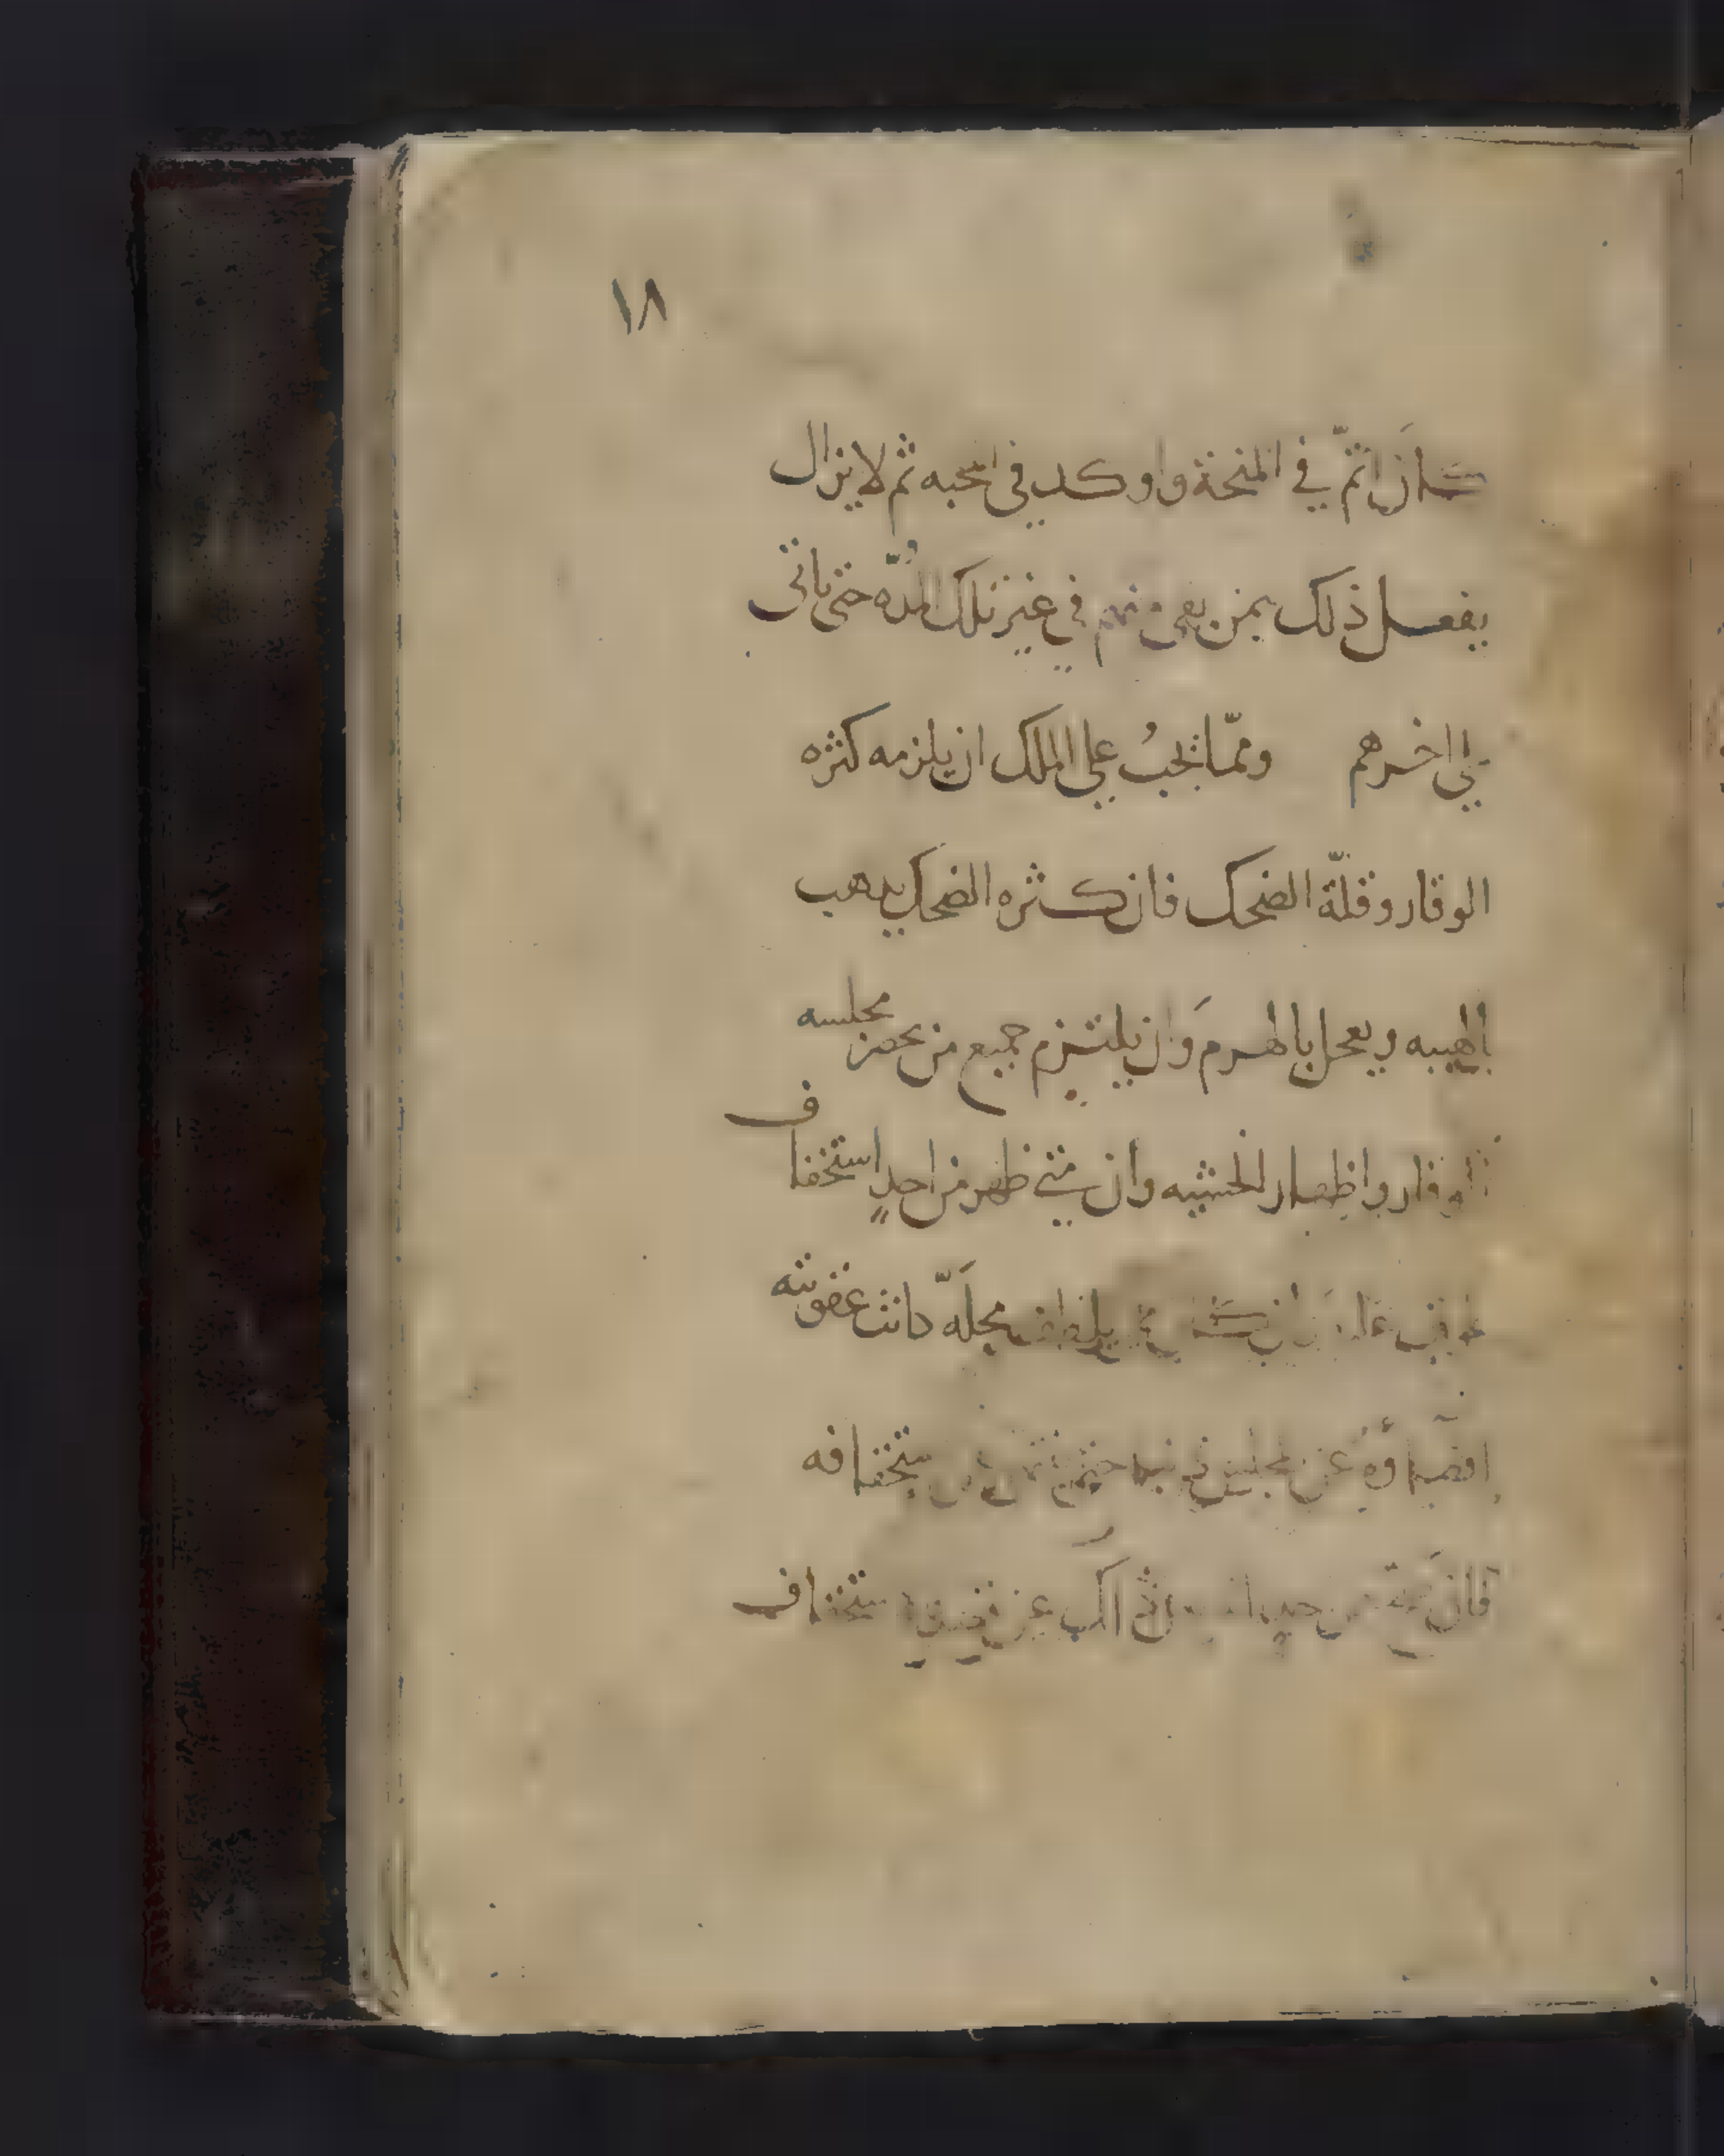 ١٨
كانَ اتمّ في المنحة واوكد في المحبه ثم لا يزال
يفعل ذلك بمن بقي منهم في غير تلك المُدّه حتى ياتي
علي اخرهم وممّا يجبُ علي الملك ان يلزمه كثره
الوقار وقلّة الضحك فان كثره الضحك يدهب
بالهيبه ويعجل بالهرم وَان يلتزم جميع من يحضر مجلسه
الوقار واظهار الخشيه وان متي ظهر من احدٍ استخفاف
عوقب عليه محلّه كانت عقوبته
اقصاؤه عن مجلسه استخفافه
فان استخفاف